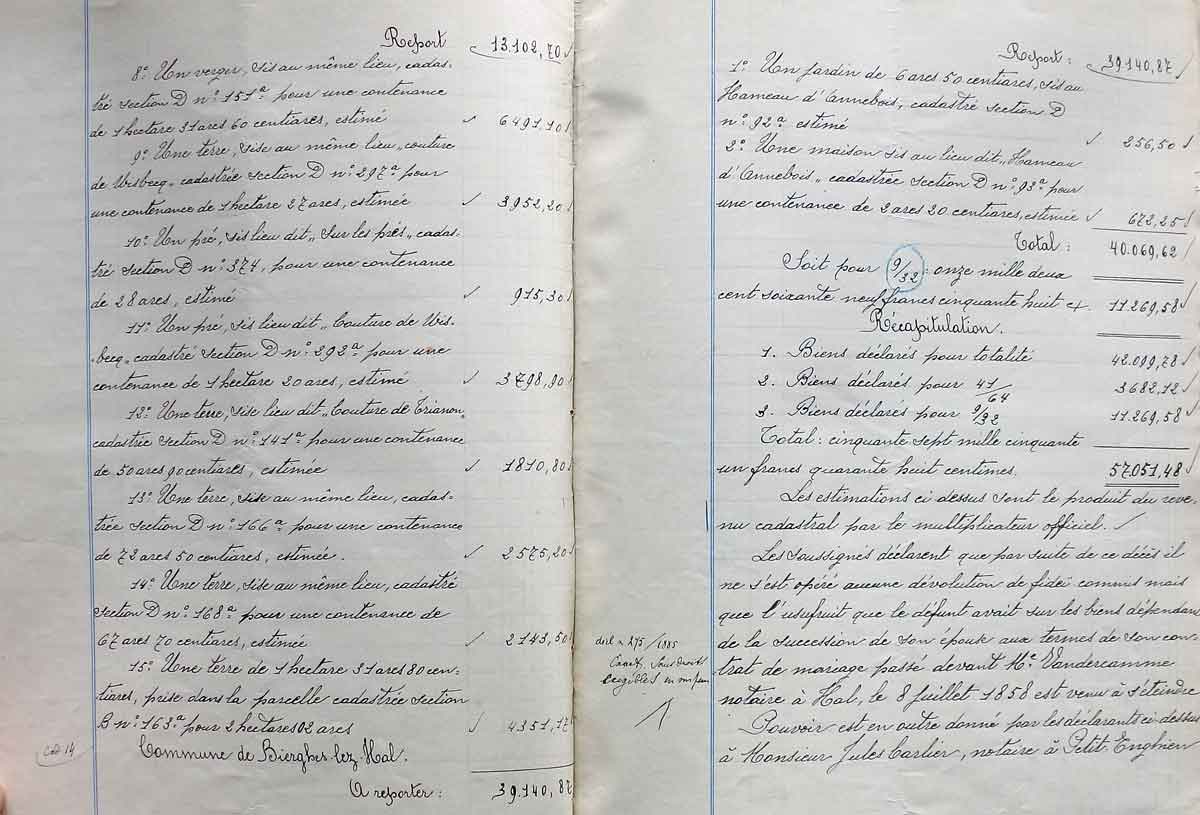 Report 13.102,70
8º Un verger, sis au même lieu, cadas-
tré section D nº 151ª pour une contenance
de 1 hectare 31 ares 60 centiares, estimé 6491,10
9º Une terre, sise au même lieu "couture
de Wisbecq" cadastrée section D nº 297ª pour
une contenance de 1 hectare 27 ares, estimée 3952,20
10º Un pré, sis lieu dit "Sur les prés" cadas-
tré section D nº 374, pour une contenance
de 28 ares, estimé 915,30
11º Un pré, sis lieu dit "Couture de Wis-
becq" cadastré section D nº 292ª pour une
contenance de 1 hectare 20 ares, estimé 3798,90
12º Une terre, sise lieu dit "Couture de Trianon"
cadastrée section D nº 141ª pour une contenance
de 50 ares 90 centiares, estimée 1810,80
13º Une terre, sise au même lieu, cadas-
trée section D nº 166ª pour une contenance
de 72 ares 50 centiares, estimée. 2575,20
14º Une terre, sise au même lieu, cadastrée
section D nº 168ª pour une contenance de
67 ares 70 centiares, estimée 2143,50
15º Une terre de 1 hectare 31 ares 80 cen-
tiares, prise dans la parcelle cadastrée section
B nº 163ª pour 2 hectares 02 ares 4351,17
Commune de Bierghes-lez-Hal.
A reporter : 39.140,87
Report : 39.140,87
1º Un jardin de 6 ares 50 centiares, sis au
Hameau d'Annebois, cadastré section D
nº 92ª estimé 256,50
2º Une maison sis au lieu dit "Hameau
d'Annebois" cadastrée section D nº 93ª pour
une contenance de 2 ares 20 centiares, estimée 672,25
Total : 40.069,62
Soit pour 9/32 : onze mille deux
cent soixante neuf francs cinquante huit ct. 11.269,58
Récapitulation.
1. Biens déclarés pour totalité 42.099,78
2. Biens déclarés pour 41/64 3.682,12
3. Biens déclarés pour 9/32 11.269,58
Total : cinquante sept mille cinquante
un francs quarante huit centimes. 57.051,48
Les estimations ci dessus sont le produit du reve-
nu cadastral par le multiplicateur officiel.
Les soussignés déclarent que par suite de ce décès il
ne s'est opéré aucune dévolution de fidéi commis mais
que l'usufruit que le défunt avait sur les biens dépendan
de la succession de son épouse aux termes de son con-
trat de mariage passé devant Me Vandercamme
notaire à Hal, le 8 juillet 1858 est venu à s'éteindre
Pouvoir est en outre donné par les déclarants ci-dessus
à Monsieur Jules Carlier, notaire à Petit-Enghien